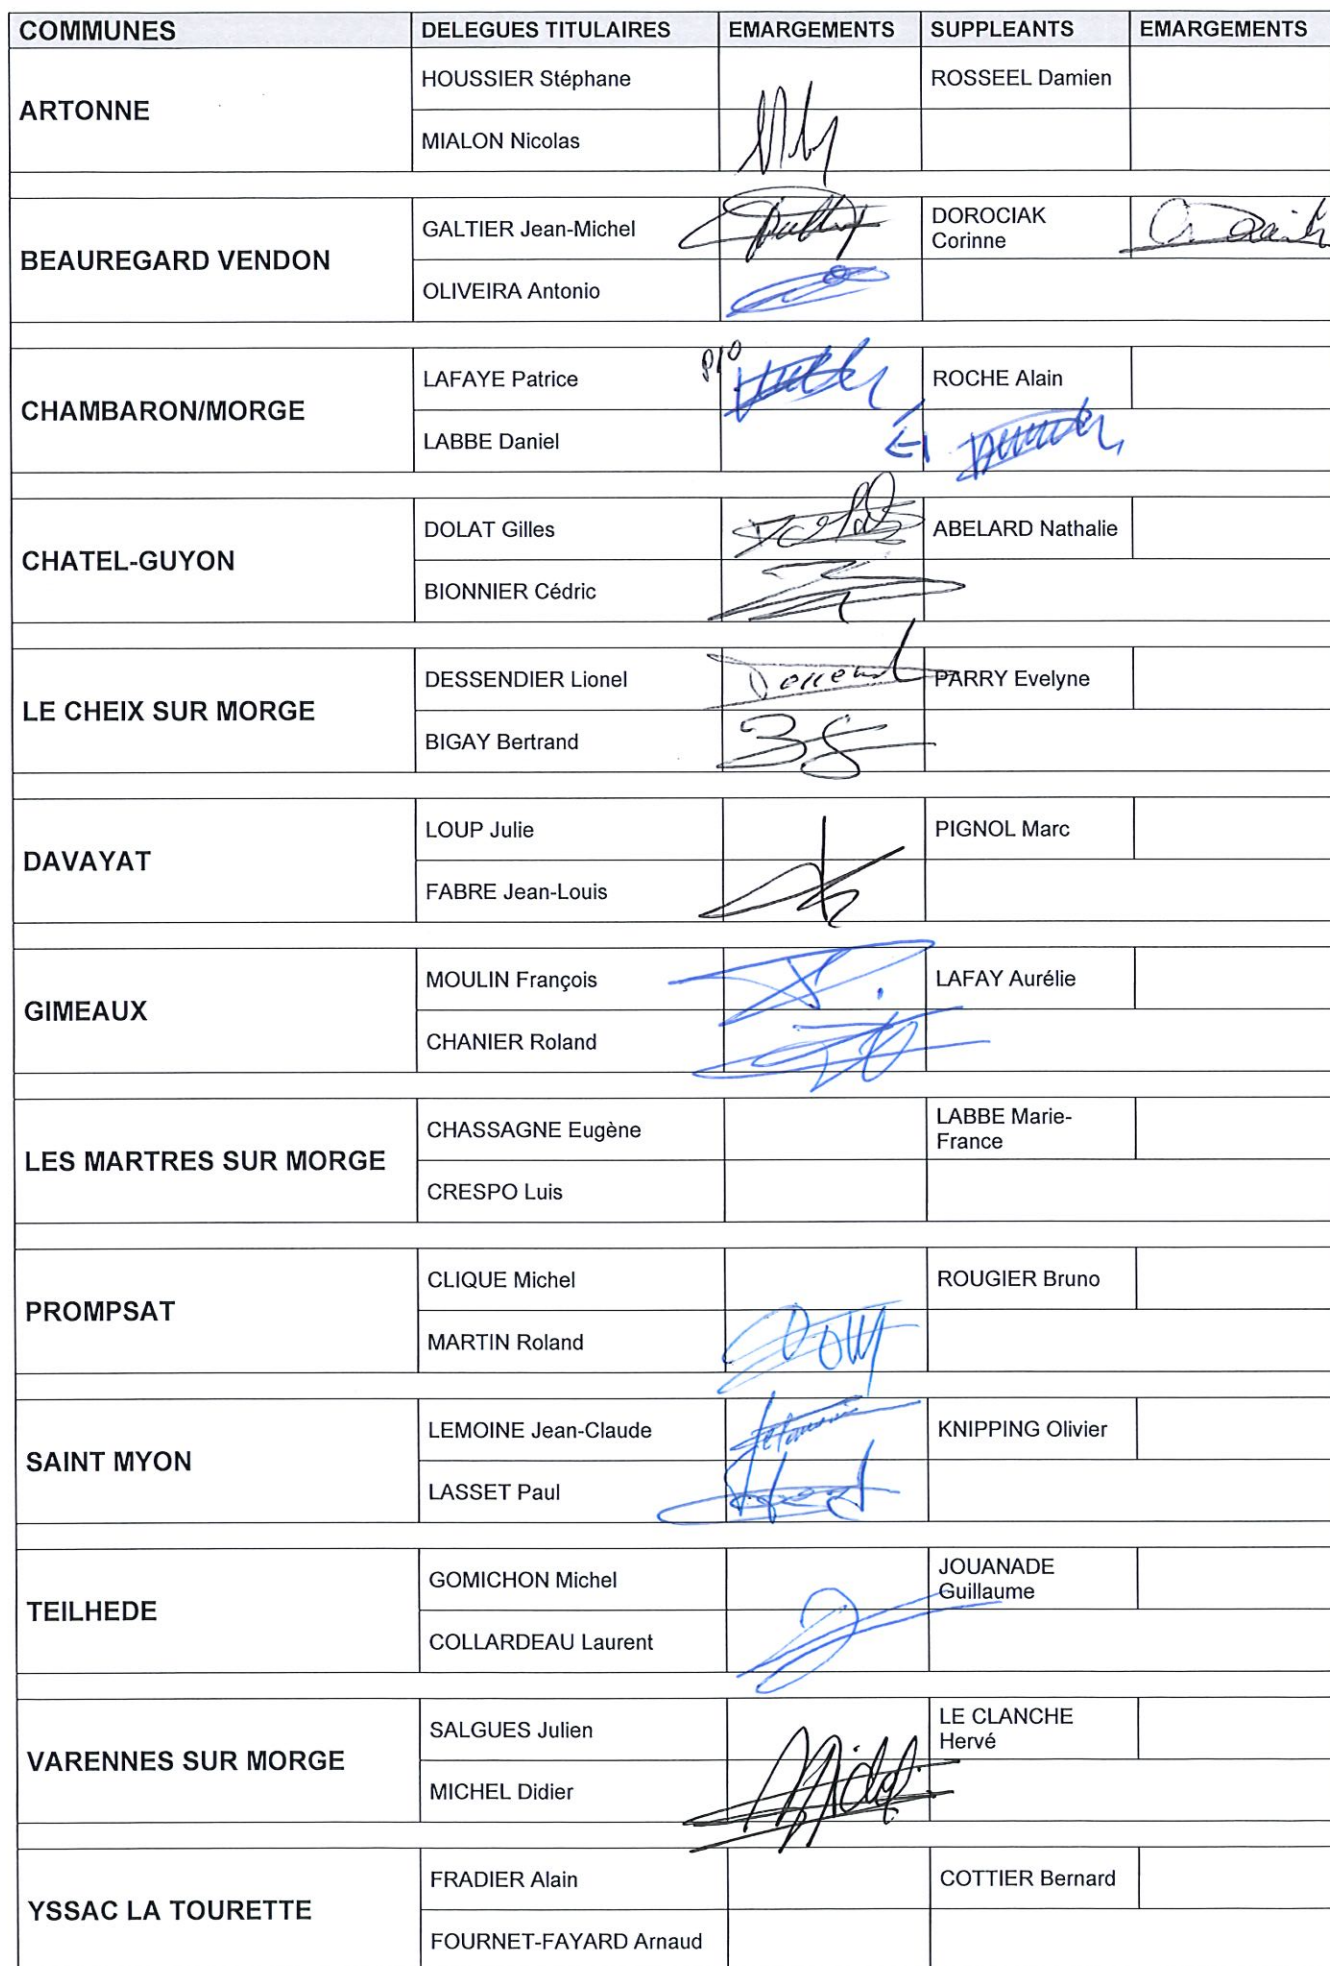 COMMUNES DELEGUES TITULAIRES EMARGEMENTS SUPPLEANTS EMARGEMENTS
ARTONNE
HOUSSIER Stéphane ROSSEEL Damien
MIALON Nicolas
BEAUREGARD VENDON
GALTIER Jean-Michel DOROCIAK
Corinne
OLIVEIRA Antonio
CHAMBARON/MORGE
LAFAYE Patrice P/O ROCHE Alain
LABBE Daniel
CHATEL-GUYON
DOLAT Gilles ABELARD Nathalie
BIONNIER Cédric
LE CHEIX SUR MORGE
DESSENDIER Lionel PARRY Evelyne
BIGAY Bertrand
DAVAYAT
LOUP Julie PIGNOL Marc
FABRE Jean-Louis
GIMEAUX
MOULIN François LAFAY Aurélie
CHANIER Roland
LES MARTRES SUR MORGE
CHASSAGNE Eugène LABBE Marie-
France
CRESPO Luis
PROMPSAT
CLIQUE Michel ROUGIER Bruno
MARTIN Roland
SAINT MYON
LEMOINE Jean-Claude KNIPPING Olivier
LASSET Paul
TEILHEDE
GOMICHON Michel JOUANADE
Guillaume
COLLARDEAU Laurent
VARENNES SUR MORGE
SALGUES Julien LE CLANCHE
Hervé
MICHEL Didier
YSSAC LA TOURETTE
FRADIER Alain COTTIER Bernard
FOURNET-FAYARD Arnaud